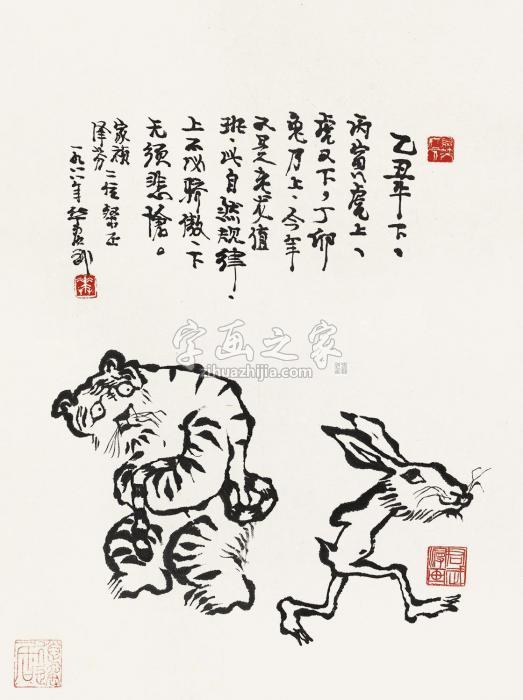 乙丑牛下、
丙寅虎上、
虎又下，丁卯
兔乃上、今年
又是老 值
班，以自然规律，
上不必骄傲，下
无须悲怆。
家祯
泽芬 二位粲正
一九八 年 华君武
字画之家
zihuazhijia.com